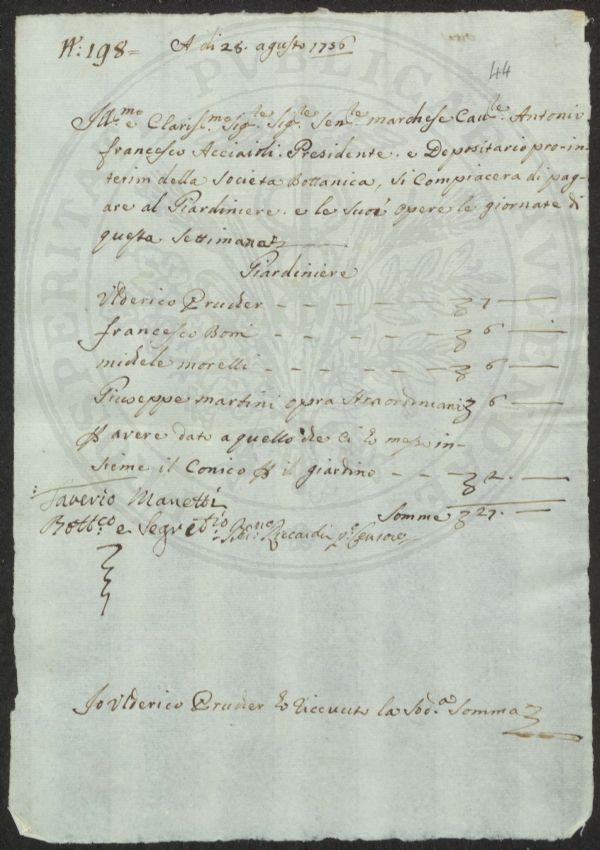 N: 198=
A di 28. agusto 1756
44
Ill.mo e Clariss.mo Sig.le Sig.le Sen.le marchese Cau.le Antonio
francesco Acciaioli. Presidente. e Depositario pro-in-
terim della Societa Bottanica, si Compiacera di pag-
are al Giardiniere. e le Suoi opere le giornate di
questa Settimana
Giardiniere
Ulderico Pruder - - - - - - - 7 -
francesco Boni - - - - - - - 6 -
michele morelli - - - - - - - 6 -
Giuseppe martini opra straordinaria 6 -
p avere dato a quello che ci ho messo in-
sieme il Conico p il giardino - - - 2. -
Somme 27. -
Saverio Manetti
Bott.co e Segret.rio
Riccardi p.o Censore
Io Ulderico Pruder ho riceuuto la Sod.a Somma
PVBLICA